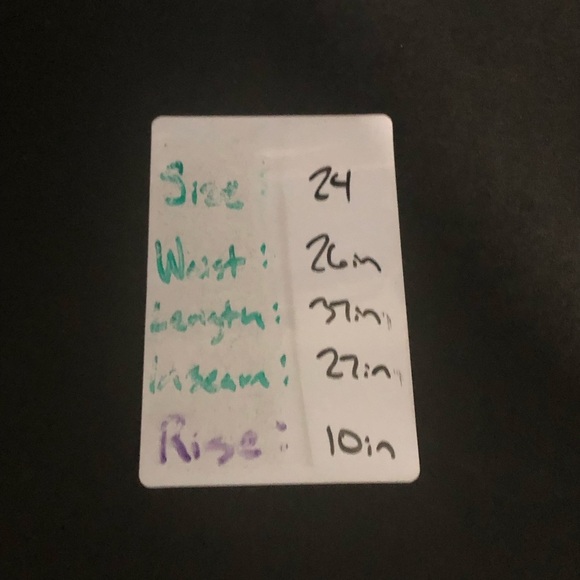 Size: 24
Waist: 26in
Length: 37in
Inseam: 27in
Rise: 10in